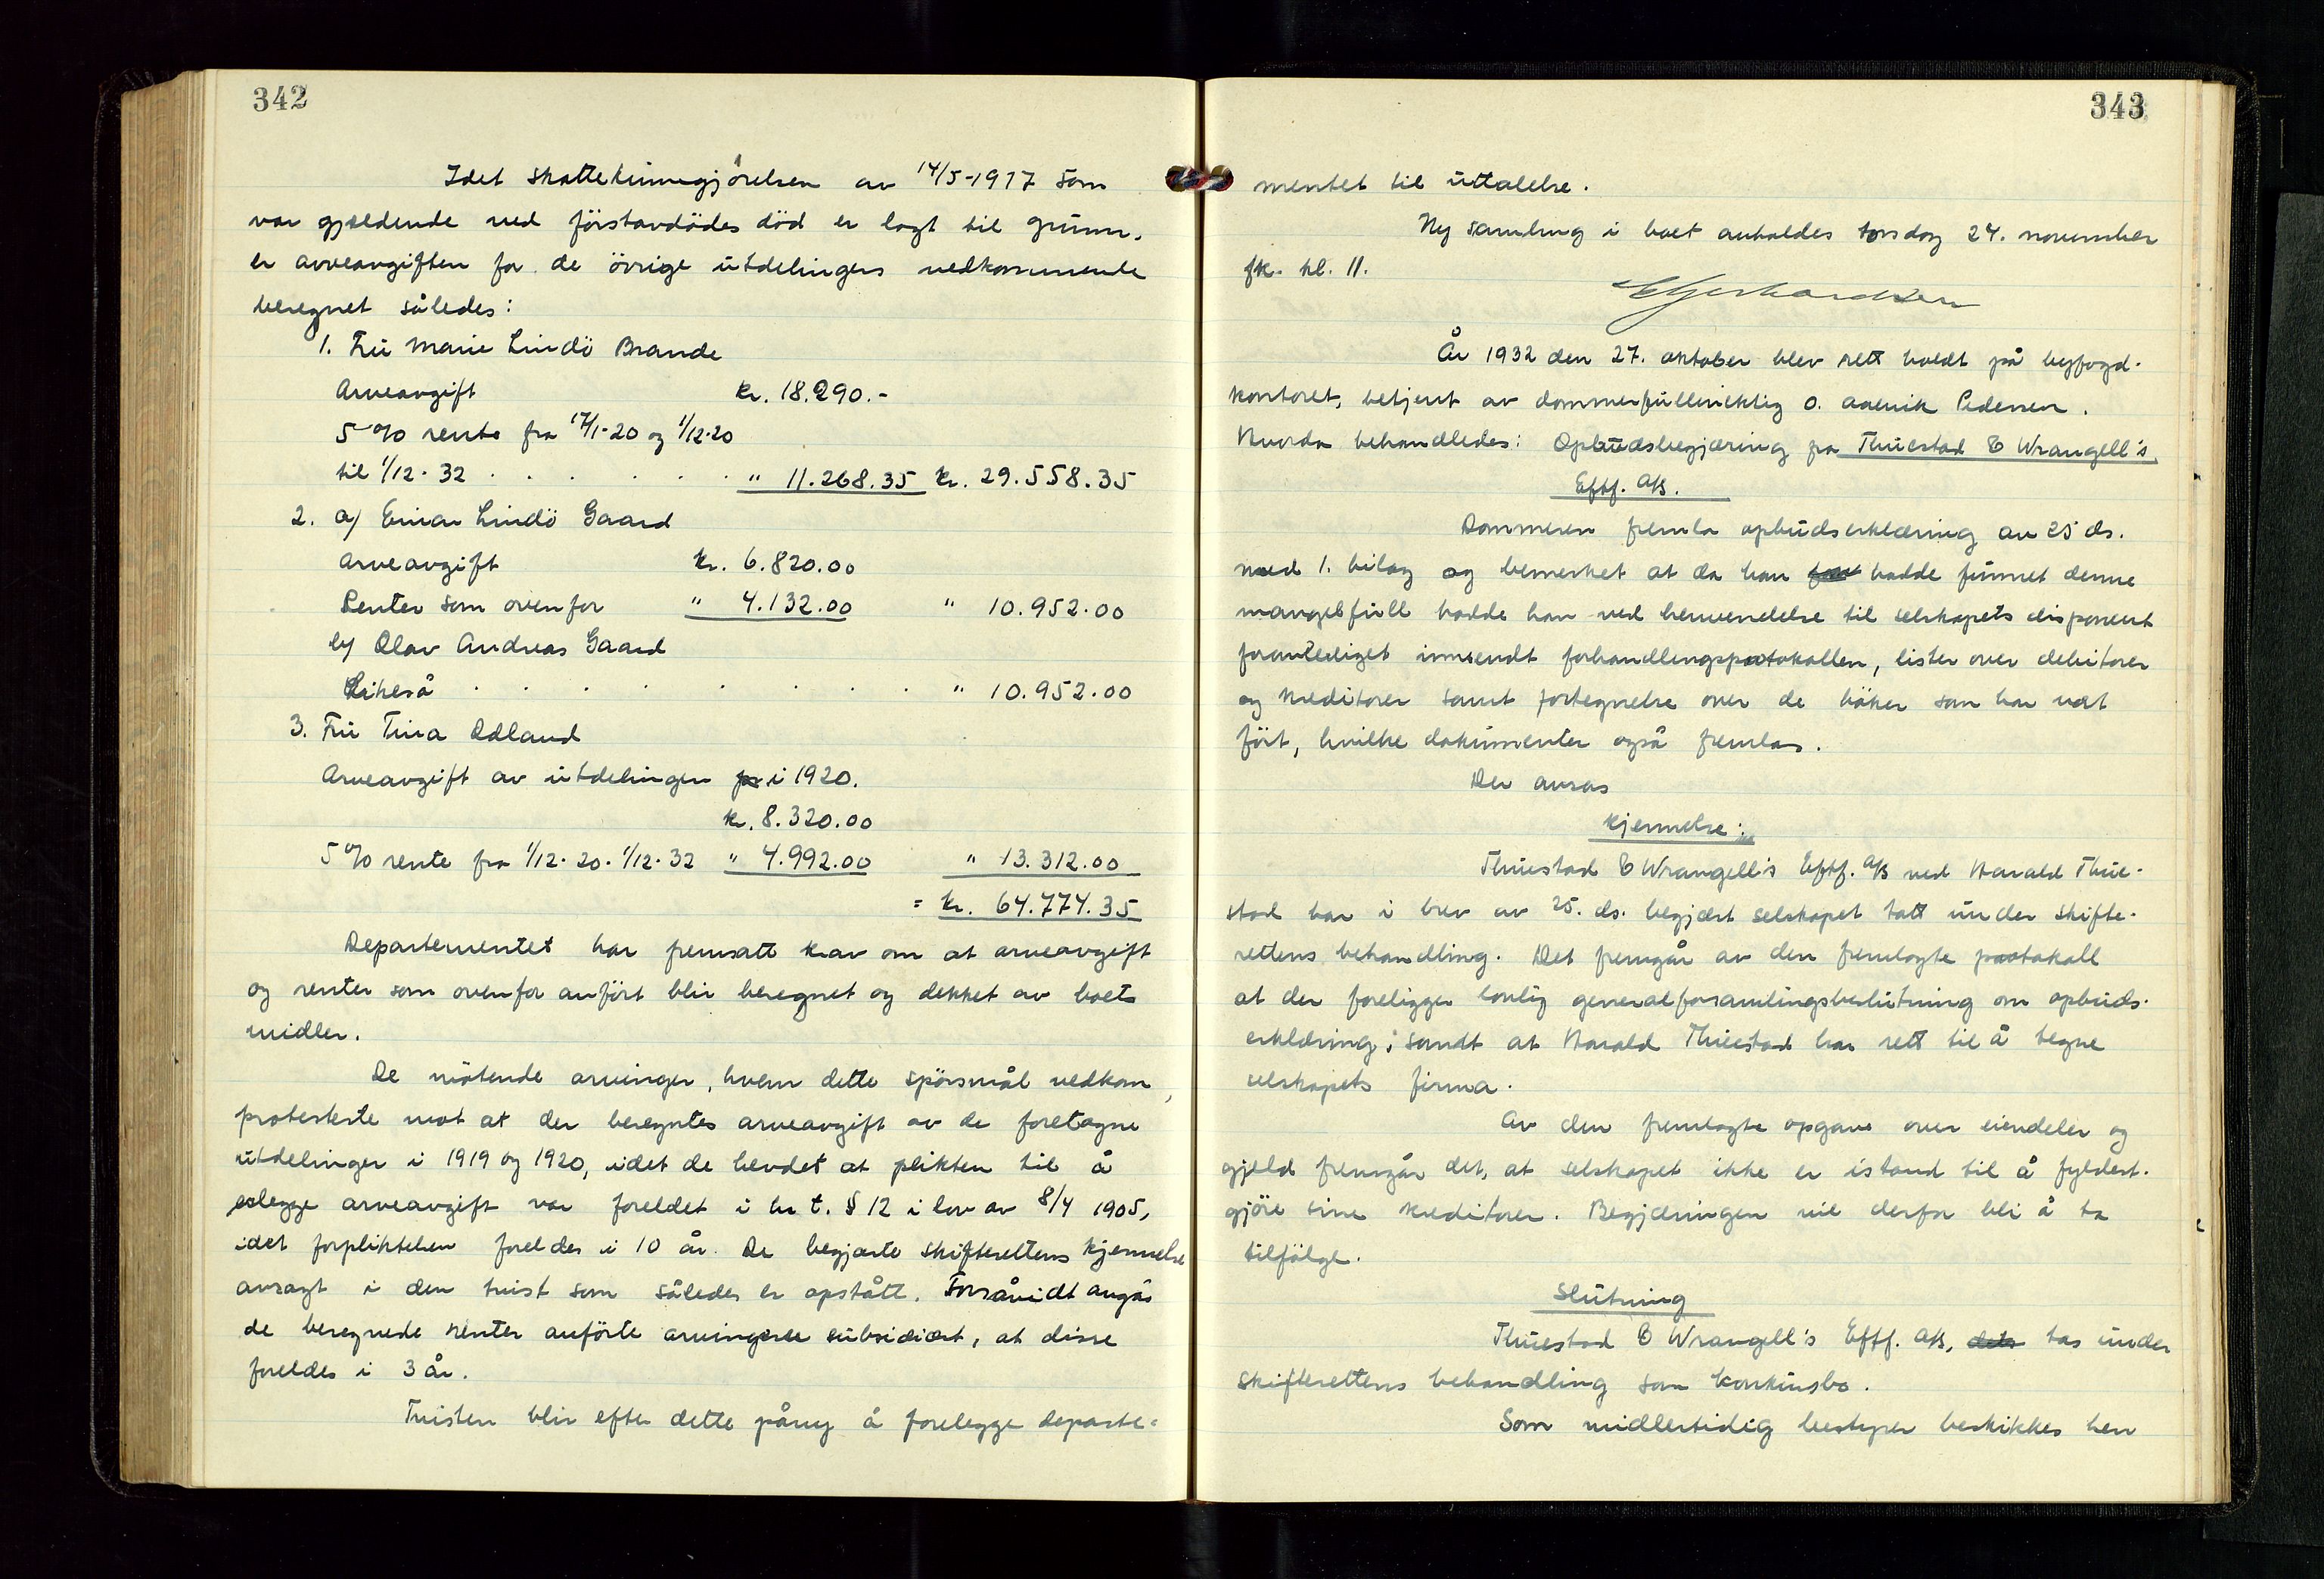 342
Idet skattekunngjörelsen av 14/5-1917 som
var gjeldende ved förstavdödes död er lagt til grunn,
er arveavgiften for de övrige utdelingers vedkommende
beregnet således:
1. Fru Marie Lindö Brande
Arveavgift kr. 18.290.-
5 % rente fra 17/1-20 og 1/12-20
til 1/12-32 . . . . . . " 11.268.35 kr. 29.558.35
2. a/ Einar Lindö Gaard
Arveavgift kr. 6.820.00
Renter som ovenfor " 4.132.00 " 10.952.00
b/ Olav Andreas Gaard
Likeså . . . . . . . . " 10.952.00
3. Fru Tina Ødland
Arveavgift av utdelingen i 1920.
kr. 8.320.00
5 % rente fra 1/12-20-1/12-32 " 4.992.00 " 13.312.00
= kr. 64.774.35
Departementet har fremsatt krav om at arveavgift
og renter som ovenfor anfört blir beregnet og dekket av boets
midler.
De mötende arvinger, hvem dette spörsmål vedkom,
protesterte mot at der beregntes arveavgift av de foretagne
utdelinger i 1919 og 1920, idet de hevdet at plikten til å
erlegge arveavgift var foreldet i h.t. § 12 i lov av 8/4 1905,
idet forpliktelsen foreldes i 10 år. De begjærte skifterettens kjennelse
avsagt i den tvist som således er opstått. Forsåvidt angås
de beregnede renter anförte arvingene subsidiært, at disse
foreldes i 3 år.
Tvisten blir efter dette påny å forelegge departe-
343
mentet til uttalelse.
Ny samling i boet anholdes torsdag 24. november
fk. kl. 11.
År 1932 den 27. oktober blev rett holdt på byfogd-
kontoret, betjent av dommerfullmektig O. Aaenik Pedersen.
Hvorda behandledes: Opbudsbegjæring fra Thuestad & Wrangell's
Eftf. A/S.
Dommeren fremla opbudserklæring av 25 ds.
med 1. bilag og bemerket at da han hadde funnet denne
mangelfull hadde han ved henvendelse til selskapets disponent
foranlediget innsendt forhandlingsprotokollen, lister over debitorer
og kreditorer samt fortegnelse over de böker som har vært
fört, hvilke dokumenter også fremlas.
Der avsas
kjennelse:
Thuestad & Wrangell's Eftf. A/S ved Harald Thue-
stad har i brev av 25. ds. begjært selskapet tatt under skifte-
rettens behandling. Det fremgår av den fremlagte protokoll
at der foreligger lovlig generalforsamlingsbeslutning om opbuds-
erklæring; samdt at Harald Thuestad har rett til å tegne
selskapets firma.
Av den fremlagte opgave over eiendeler og
gjeld fremgår det, at selskapet ikke er istand til å fyldest-
gjöre sine kreditorer. Begjæringen vil derfor bli å ta
tilfölge.
Slutning
Thuestad & Wrangell's Eftf. A/S, tas under
skifterettens behandling som konkursbo.
Som midlertidig bestyrer beskikkes herr